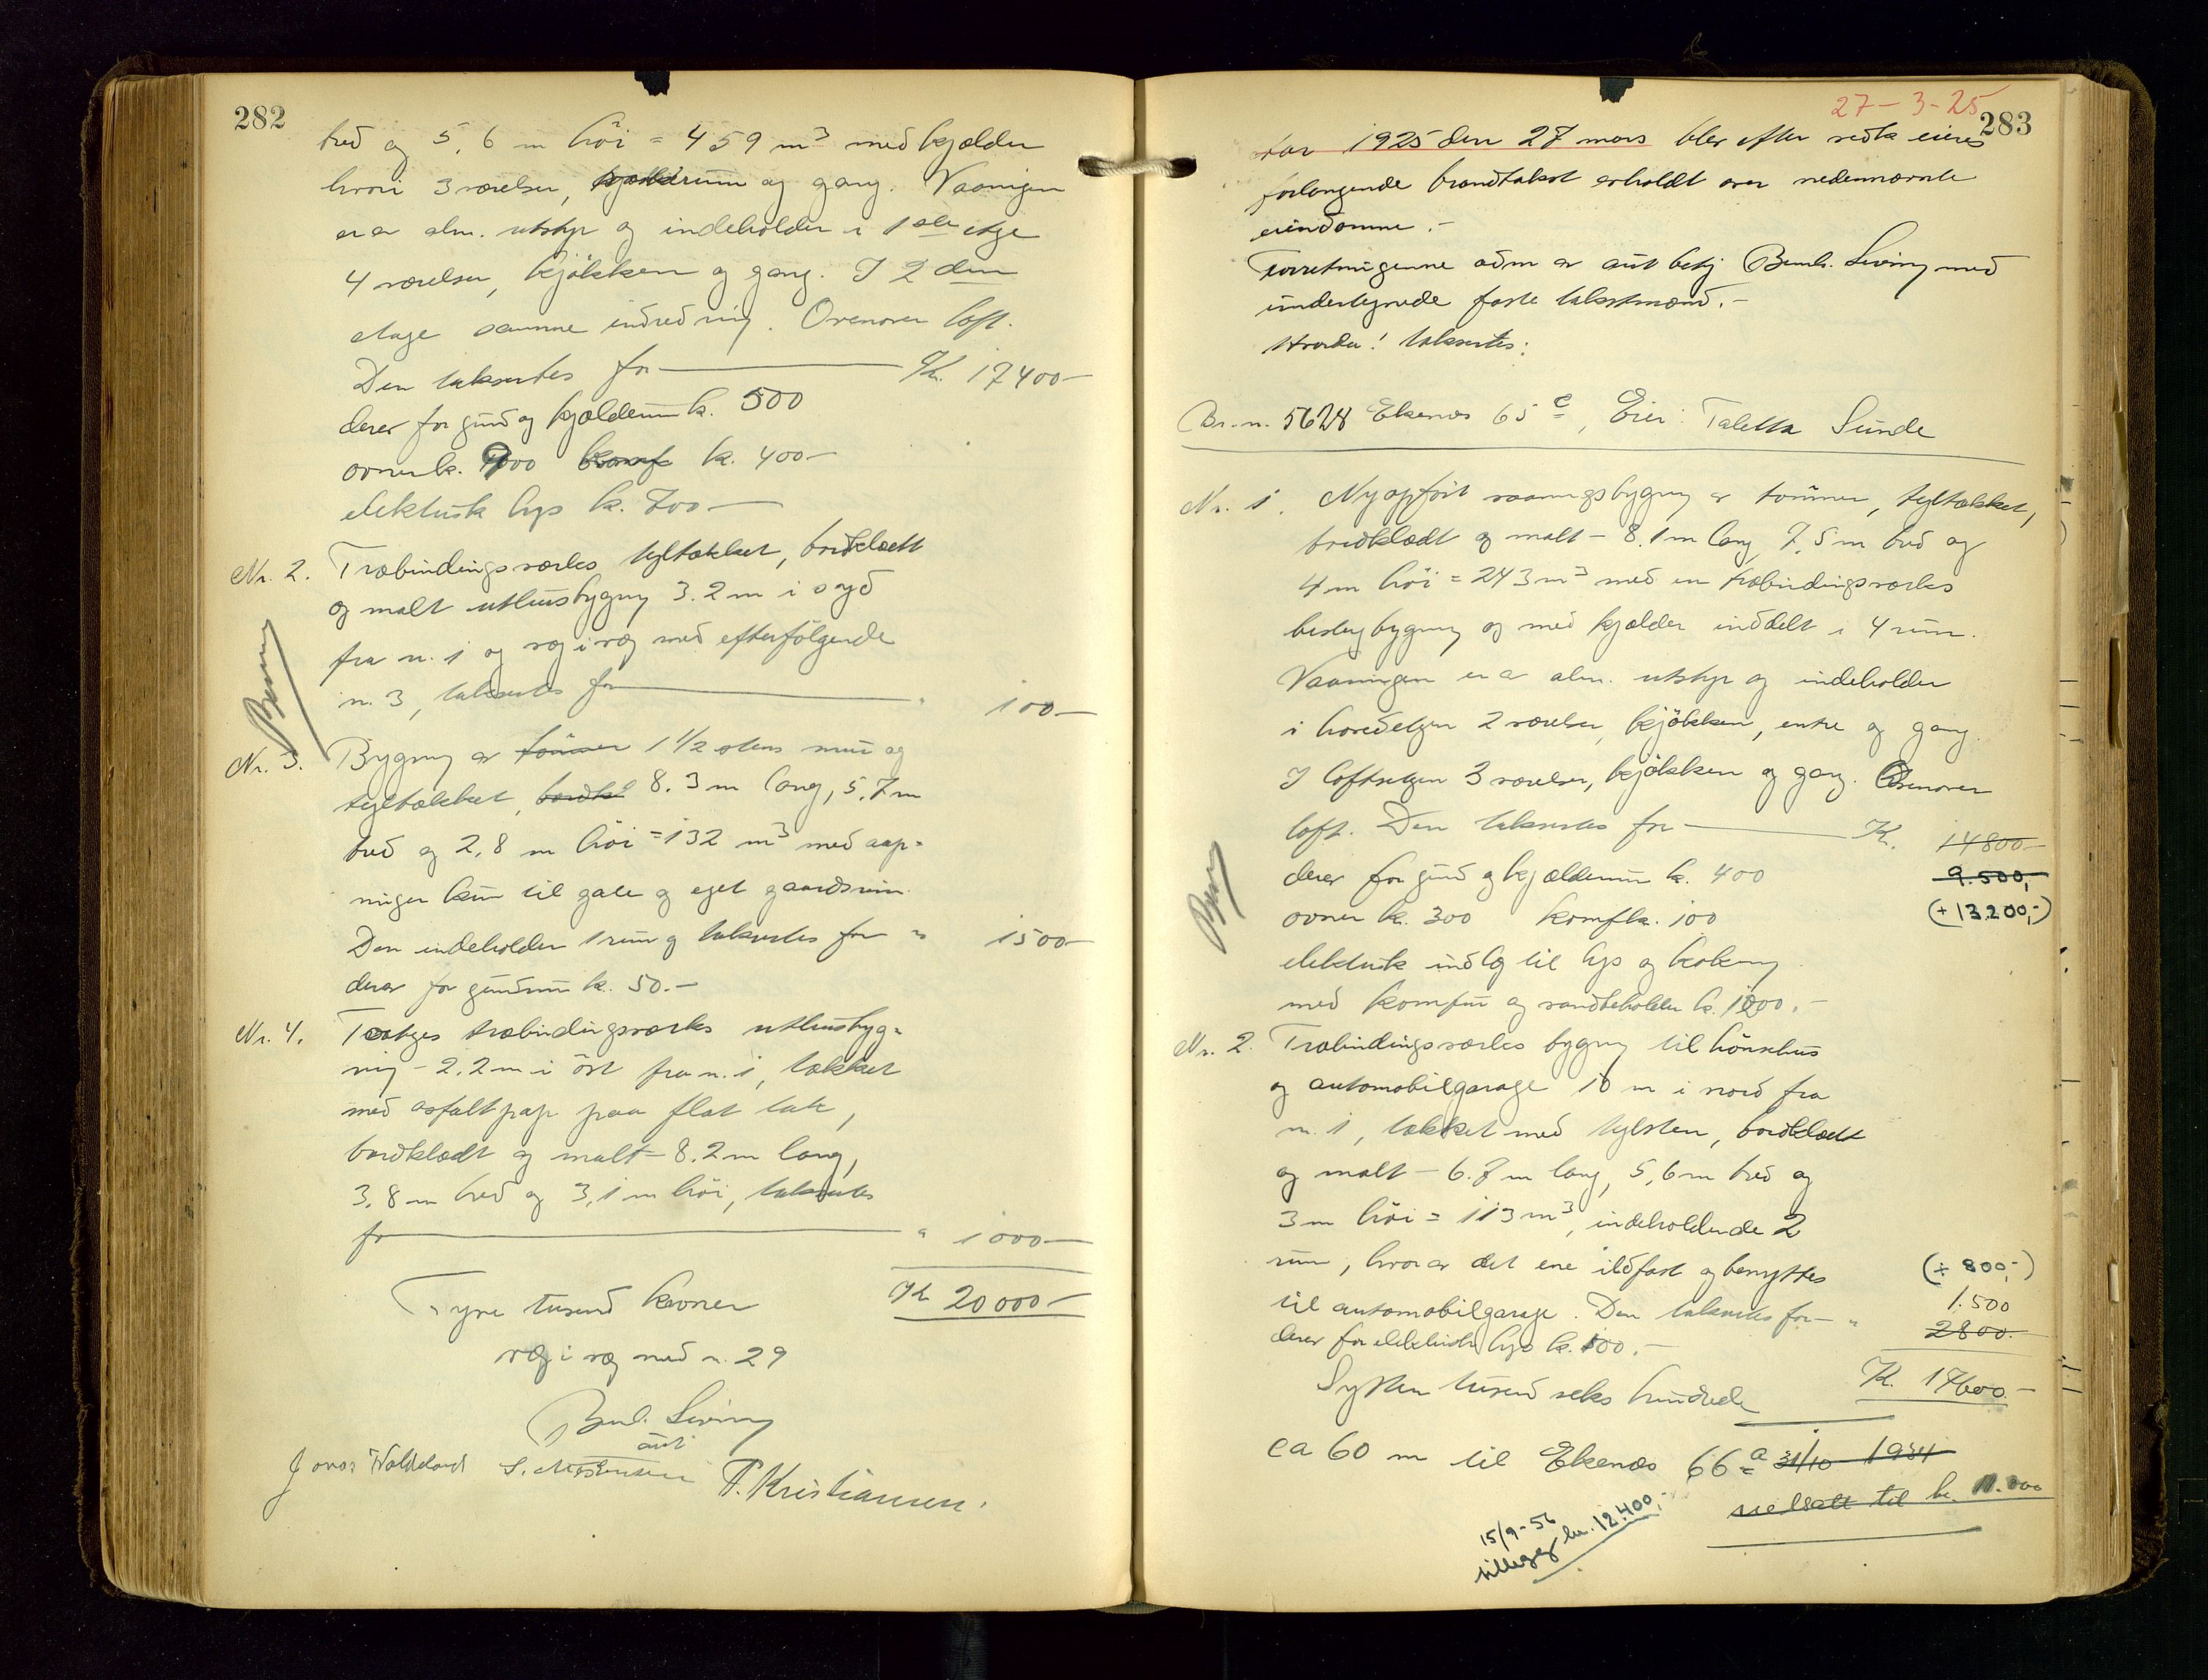 282
bred og 5,6 m høi = 459 m³ med kjælder
hvori 3 værelser, kjælderrum og gang. Vaaningen
er a alm. utstyr og indeholder i 1ste etge
4 værelser, kjøkken og gang. I 2 den
etage samme indredning. Ovenover loft.
Den taksertes for Kr. 17400-
derav for grund og kjælderum k. 500
ovner k. 900 komf k. 400-
elektrisk lys k. 700-
Nr. 2. Træbindingsverks tegltækket, bordklædt
og malt uthusbygning 3.2 m i syd
fra n. 1 og væg i væg med efterfølgende
n. 3, taksertes for " 100-
Nr. 3. Bygning av tømmer 1 1/2 stens mur og
tegltækket, bordkl 8.3 m lang, 5,7 m
bred og 2,8 m høi = 132 m³ med aap=
ninger kun til gate og eget gaardsrum
Den indeholder 1 rum og taksertes for " 1500-
derav for grundmur k. 50.-
Nr. 4. Toetges træbindingsverks uthusbyg=
ning - 2.2 m i øst fra n. 1, tækket
med asfaltpap paa flat tak,
bordklædt og malt - 8.2 m lang,
3,8 m bred og 3,1 m høi, taksertes
for " 1000-
Kr 20000-
Tyve tusend kroner
væg i væg med n. 29
Bernh. Sviring
aut
Jonas Watteland T. Kristiansen.
27-3-25
283
Aar 1925 den 27 mars blev efter vedk eieres
forlangende brandtakst avholdt over nedennævnte
eiendomme.-
Forretningerne adm av aut betj Bernh. Sviring med
undertegnede faste takstmænd.-
Hvorda! taksertes:
Br. n. 5628 Ekenæs 65 e, Eier: Taletta Sunde
Nr. 1. Nyopført vaaningsbygning av tømmer, tegltækket,
bordklædt og malt - 8.1 m lang, 7,5 m bred og
4 m høi = 243 m³ med en træbindingsverks
bislagbygning og med kjælder inddelt i 4 rum.
Vaaningen er a alm. utstyr og indeholder
i hovedetgen 2 værelser, kjøkken, entre og gang.
I loftsetgen 3 værelser, kjøkken og gang. Ovenover
loft. Den taksertes for K. 14800-
derav for grund og kjælderum k. 400 9.500,-
ovner k. 300 komf k. 100 (+ 13.200,-)
elektrisk indlg til lys og kokning
med komfur og vandbeholder k. 1000.-
Nr. 2. Træbindingsverks bygning til hønsehus
og automobilgarage 10 m i nord fra
n. 1, tækket med teglsten, bordklædt
og malt - 6.7 m lang, 5,6 m bred og
3 m høi = 113 m³, indeholdende 2
rum, hvorav det ene ildfast og benyttes (+ 800,-)
til automobilgarage. Den taksertes for- " 1.500
2800.
derav for elektrisk lys k. 100.-
K. 17600.-
Sytten tusend seks hundrede
ca 60 m til Ekenæs 66 a 31/10 1934
nedsatt til kr. 11.000
15/9-56
tillegg kr. 12.400,-